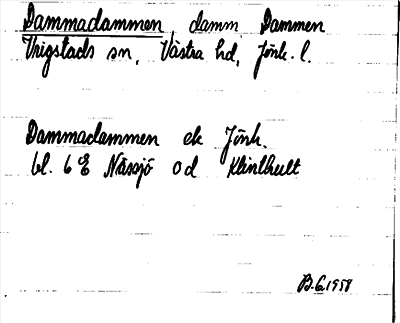 Dammadammen, damm Dammen
Vrigstads sn, Västra hd, Jönk. l.
Dammadammen ek Jönk.
bl. 6 E Nässjö od Klinthult
B.G. 1958